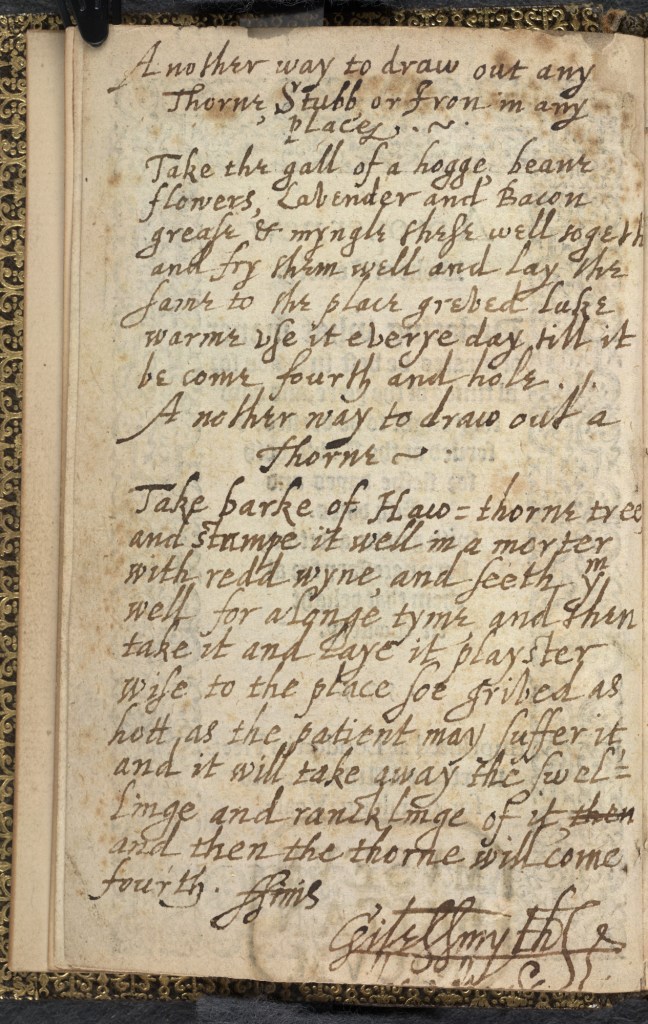 Another way to draw out any
Thorne, Stubb or Iron in any
place,
Take the gall of a hogge, beane
flowers, Lavender and Bacon
grease & myngle these well togeth
and fry them well and lay the
same to the place greved luke
warme vse it everye day till it
be come fourth and hole.
Another way to draw out a
Thorne
Take barke of Haw=thorne tree
and stampe it well in a morter
with redd wyne, and seeth ym
well for a longe tyme and then
take it and laye it playster
wise to the place soe grived as
hott as the patient may suffer it
and it will take away the swel=
linge and rancklinge of it then
and then the thorne will come
fourth. ffinis